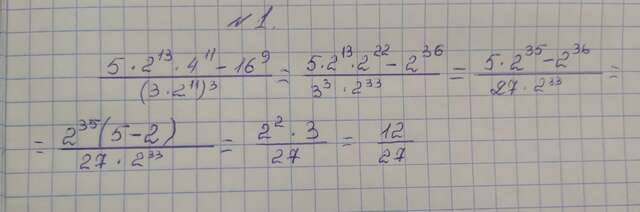 № 1.
(5 · 2¹³ · 4¹¹ − 16⁹) / (3 · 2¹¹)³ = (5 · 2¹³ · 2²² − 2³⁶) / (3³ · 2³³) = (5 · 2³⁵ − 2³⁶) / (27 · 2³³) =
= (2³⁵(5 − 2)) / (27 · 2³³) = (2² · 3) / 27 = 12 / 27